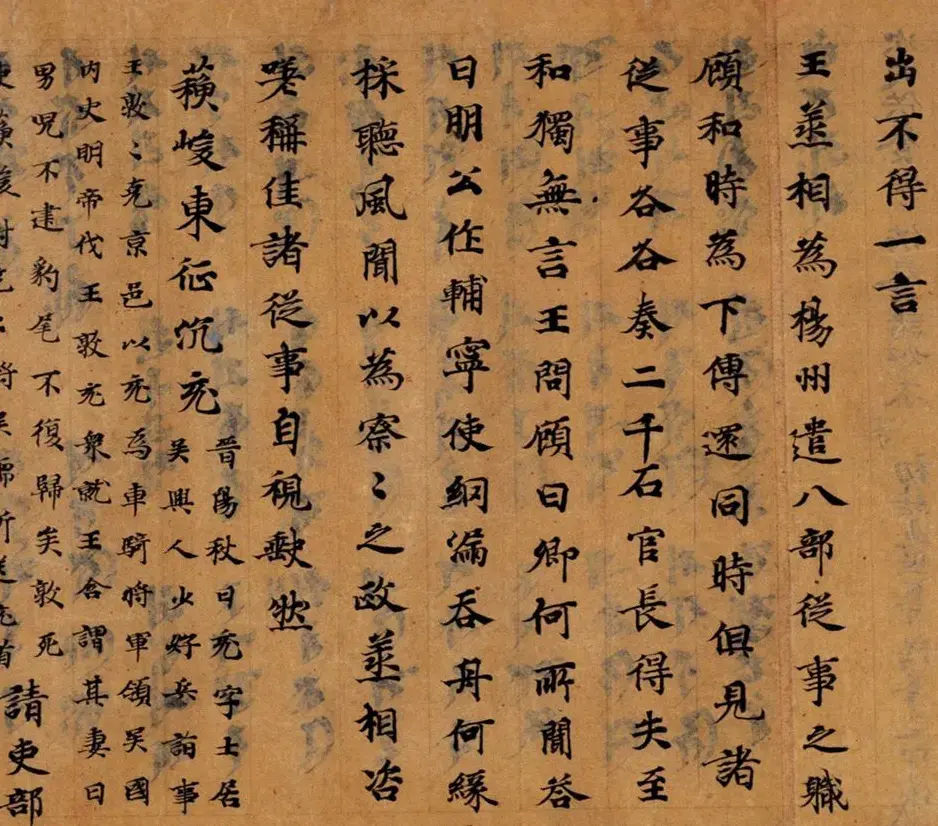 出不得一言
王丞相為楊州遣八部從事之職
顧和時為下傳還同時俱見諸
從事各各奏二千石官長得失至
和獨無言王問顧曰卿何所聞答
曰明公作輔寧使網漏吞舟何緣
採聽風聞以為察〻之政丞相咨
嗟稱佳諸從事自視缺然
蘓峻東征沉充
晉陽秋曰充字士居
吳興人少好兵諂事
王敦〻克京邑以充為車騎將軍領吳國
内史明帝伐王敦充衆就王含謂其妻曰
男兒不建豹尾不復歸矣敦死
蘓峻討充〻將吳儒斫送充首
請吏部